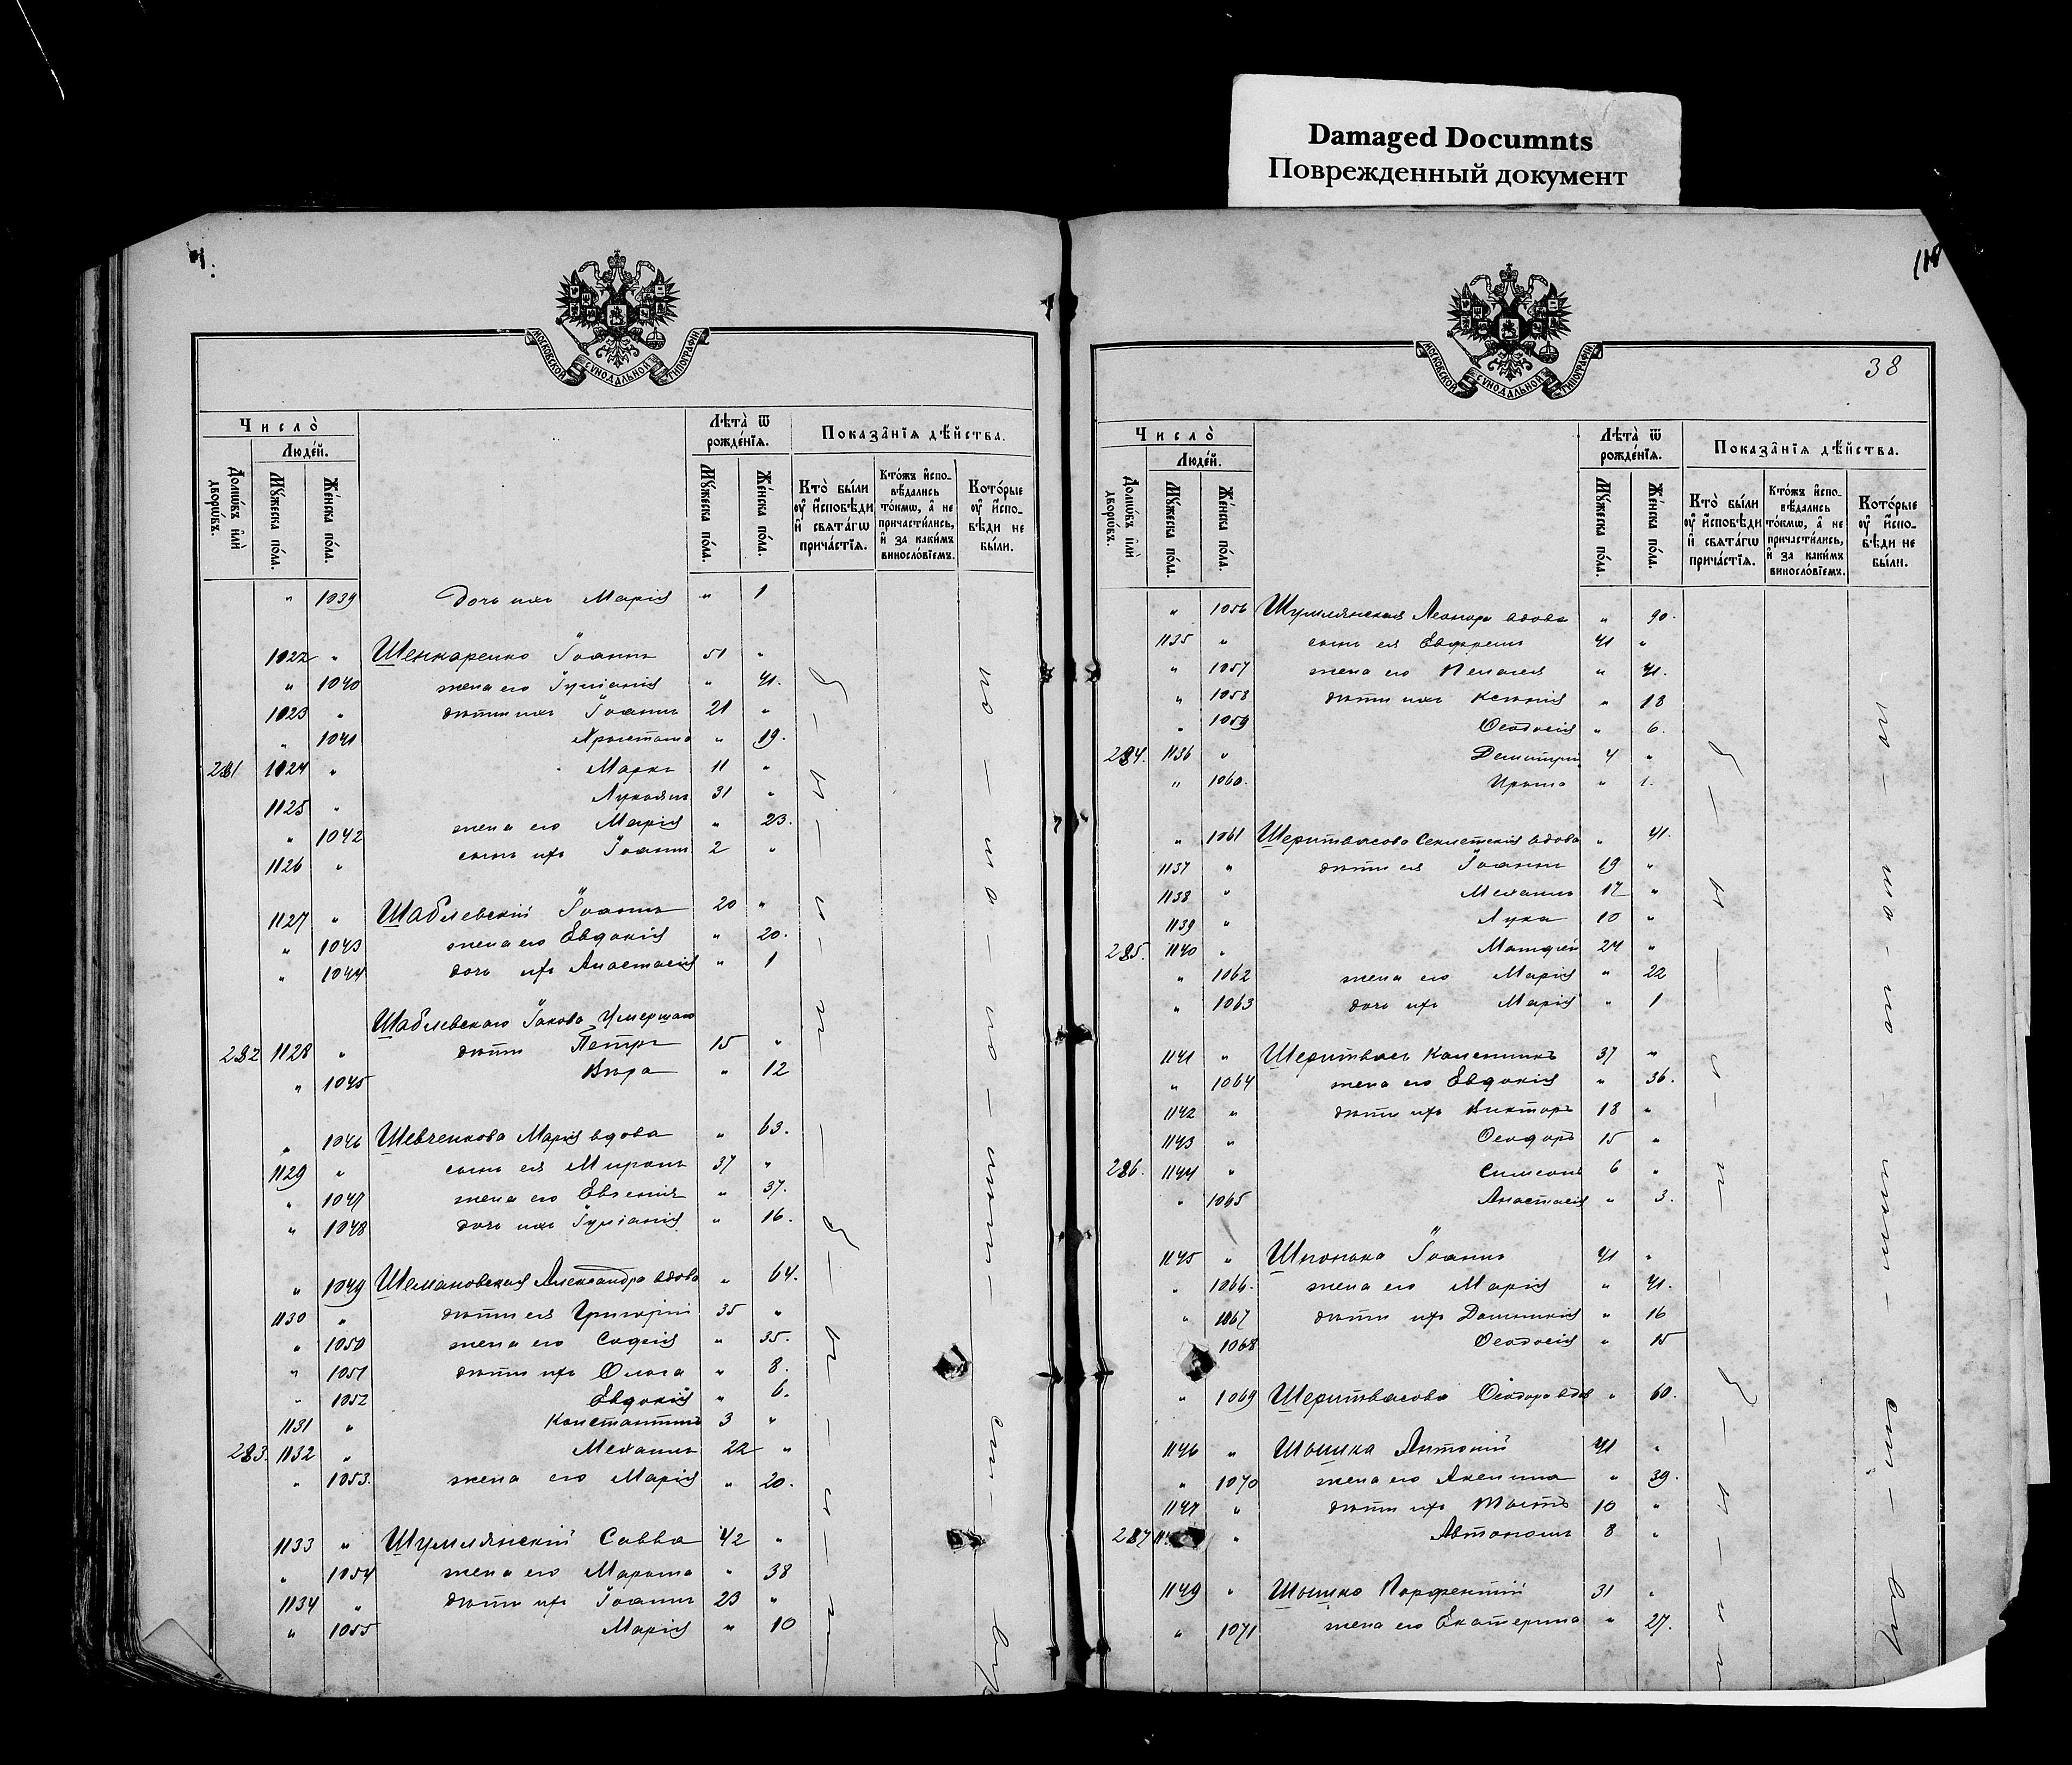 Damaged Documnts
Поврежденный документ
МОСКОВСКОЙ СѴНОДАЛЬНОЙ ТИПОГРАФІИ
Число̀
Люде́й.
Домѡ́въ и҆лѝ дворѡ́въ.
Мꙋ́жеска по́ла.
Же́нска по́ла.
Лѣта̀ ѿ рожде́нїѧ.
Мꙋ́жеска по́ла.
Же́нска по́ла.
Показа̑нїѧ дѣ́йства.
Кто̀ бы́ли оу҆ и҆́сповѣди и҆ свѧта́гѡ прича́стїѧ.
Кто́жъ и҆спо-
вѣ́дались
то́кмѡ, а҆ не
причасти́лись,
и҆ за каки́мъ
винослові́емъ.
Кото́рые
оу҆ и҆спо-
вѣди не
бы́ли.
" 1039 дочь ихъ Марія " 1
1022 " Шенкаренко Іоаннъ 51 "
" 1040 жена его Іуліанія " 41.
1023 " дѣти ихъ Іоаннъ 21 "
" 1041 Христина " 19.
281 1024 " Маркъ 11 "
1125 " Лукіанъ 31 "
" 1042 жена его Марія " 23.
1126 " сынъ ихъ Іоаннъ 2 "
1127 " Шаблевскій Іоаннъ 20 "
" 1043 жена его Евдокія " 20.
" 1044 дочь ихъ Анастасія " 1
Шаблевскаго Іакова умершаго
282 1128 " дѣти Петръ 15 "
" 1045 Вѣра " 12
" 1046 Шевченкова Марія вдова " 63.
1129 " сынъ ея Миронъ 37 "
" 1047 жена его Евгенія " 37.
" 1048 дочь ихъ Іуліанія " 16.
" 1049 Шемановская Александра вдова " 64.
1130 " дѣти ея Григорій 35 "
" 1050 жена его Софія " 35.
" 1051 дѣти ихъ Ольга " 8.
" 1052 Евдокія " 6.
1131 " Константинъ 3 "
283. 1132 " Михаилъ 22 "
" 1053. жена его Марія " 20.
1133 " Шумлянскій Савва 42 "
" 1054 жена его Марѳа " 38
1134 " дѣти ихъ Іоаннъ 23 "
" 1055 Марія " 10
118
38
МОСКОВСКОЙ СѴНОДАЛЬНОЙ ТИПОГРАФІИ
Число̀
Люде́й.
Домѡ́въ и҆лѝ дворѡ́въ.
Мꙋ́жеска по́ла.
Же́нска по́ла.
Лѣта̀ ѿ рожде́нїѧ.
Мꙋ́жеска по́ла.
Же́нска по́ла.
Показа̑нїѧ дѣ́йства.
Кто̀ бы́ли оу҆ и҆́сповѣди и҆ свѧта́гѡ прича́стїѧ.
Кто́жъ и҆спо-
вѣ́дались
то́кмѡ, а҆ не
причасти́лись,
и҆ за каки́мъ
винослові́емъ.
Кото́рые
оу҆ и҆спо-
вѣди не
бы́ли.
" 1056 Шумлянская вдова " 90.
1135 " сынъ ея Евфремъ 41 "
" 1057 жена его Пелагея " 41.
" 1058 дѣти ихъ Ксенія " 18
" 1059 Ѳеодосія " 6.
284. 1136 " Димитрій 4 "
" 1060. Ирина " 1.
" 1061 вдова " 41.
1137 " дѣти ея Іоаннъ 19 "
1138 " Михаилъ 17 "
1139 " Лука 10 "
285. 1140 " Матфей 24 "
" 1062 жена его Марія " 22
" 1063 дочь ихъ Марія " 1
1141 " 37 "
" 1064 жена его Евдокія " 36.
1142 " дѣти ихъ Викторъ 18 "
1143 " Ѳеодоръ 15 "
286. 1144 " Симеонъ 6 "
" 1065 Анастасія " 3.
1145 " Шпонька Іоаннъ 41 "
" 1066. жена его Марія " 41.
" 1067 дѣти ихъ Домникія " 16
1068 Ѳеодосія " 15
" 1069 Ѳеодора вдова " 60.
1146 " Шышка Антоній 41 "
" 1070 жена его Акилина " 39.
1147 " дѣти ихъ 10 "
287 " Автономъ 8 "
1149 " Шышко Порфентій 31 "
" 1071 жена его Екатерина " 27.